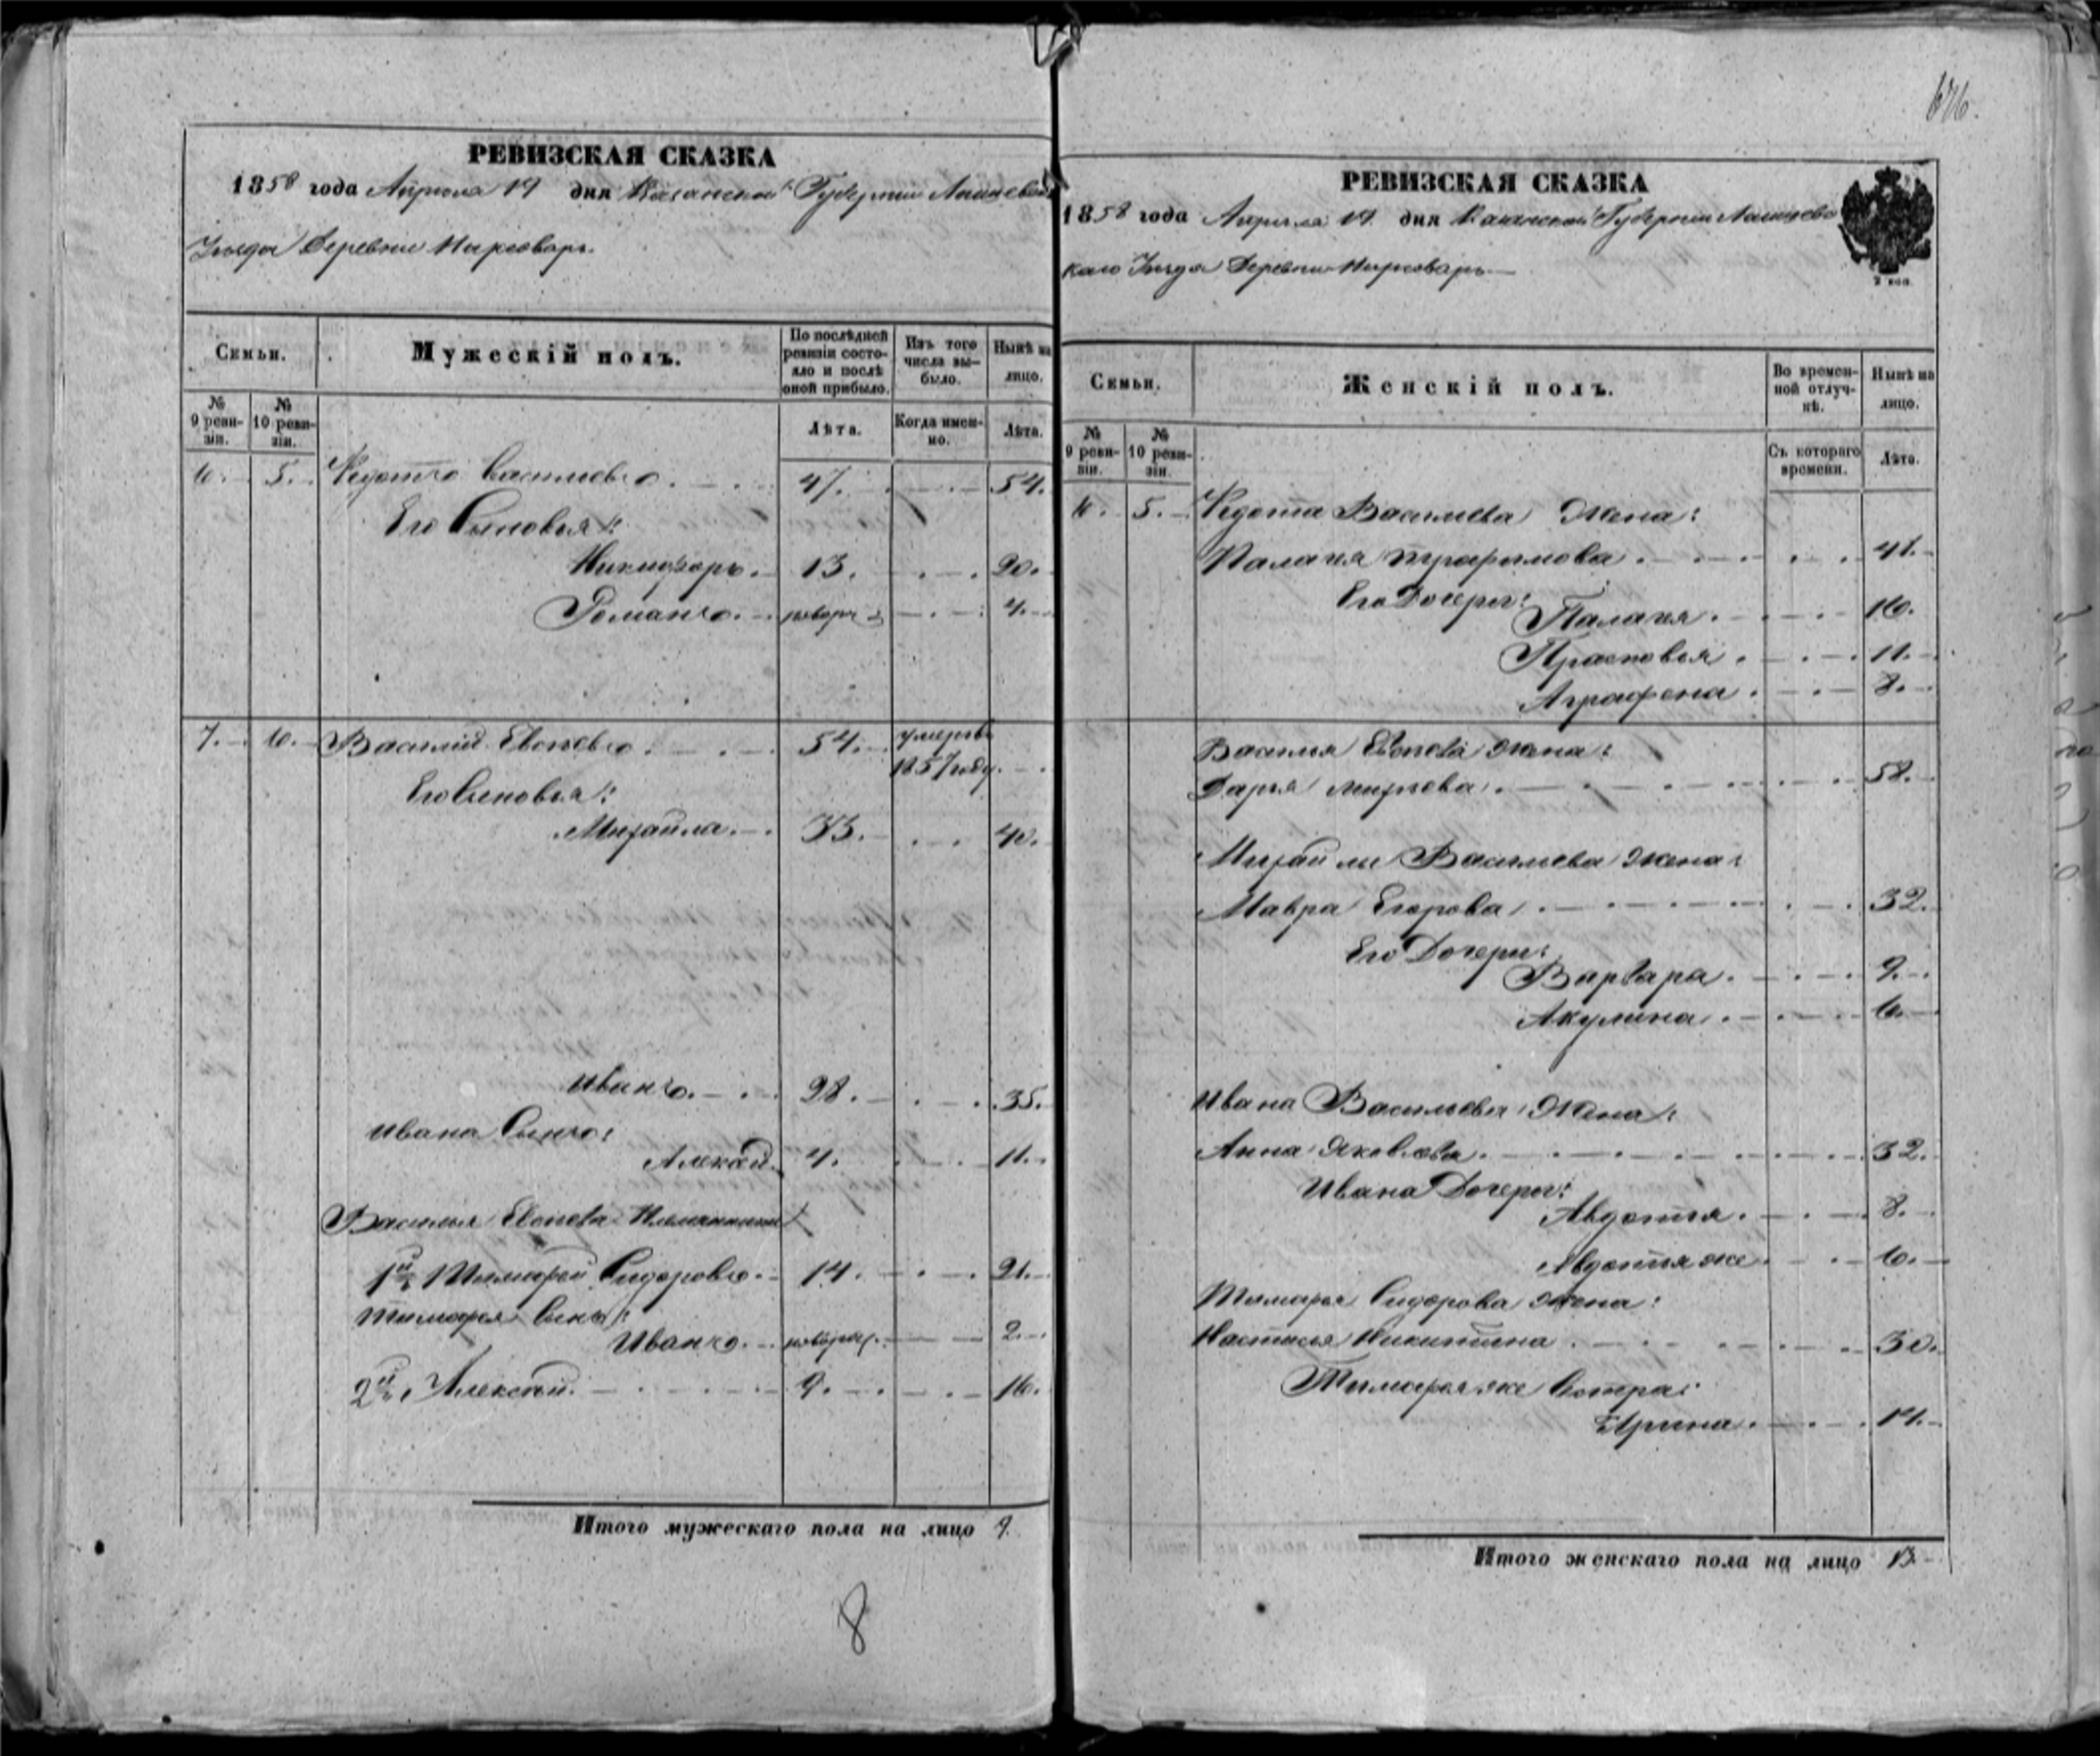 676.
РЕВИЗСКАЯ СКАЗКА
1858 года Апреля 19 дня Казанской Губернии Лаишевска
Уезда Деревни
Семьи.
Мужескій полъ.
По послѣдней ревизіи состояло и послѣ оной прибыло.
Изъ того числа выбыло.
Нынѣ на лицо.
№ 9 ревизіи.
№ 10 ревизіи.
Лѣта.
Когда именно.
Лѣта.
6. 5. Федотъ Васильевъ 47. 54.
Его Сыновья:
Никифоръ 13. 20.
Романъ 4.
7. 6. Василий 54. умеръ в 1857 году.
Его Сыновья:
Михайла 33. 40.
Иванъ 28. 35.
Ивана Сынъ:
Алексей 4. 11.
Василья Племянники
1й Тимофей Сидоровъ 14. 21.
Тимофея Сынъ:
Иванъ 2.
2й Алексѣй 9. 16.
Итого мужескаго пола на лицо 9.
8
РЕВИЗСКАЯ СКАЗКА
1858 года Апреля 19 дня Казанской Губернии Лаишевс
каго Уезда Деревни
2 коп.
Семьи.
Женскій полъ.
Во временной отлучкѣ.
Нынѣ на лицо.
№ 9 ревизіи.
№ 10 ревизіи.
Съ котораго времени.
Лѣта.
6. 5. Федота Васильева Жена:
Палагея Трафимова 41.
Его Дочери:
Палагея 16.
Прасковья 11.
Аграфена 8.
Василья жена:
Дарья 58.
Михайлы Васильева жена:
Мавра Егорова 32.
Его Дочери:
Варвара 9.
Акулина 6.
Ивана Васильева Жена:
Анна Яковлева 32.
Ивана Дочери:
Авдотья 8.
Авдотья же 6.
Тимофея Сидорова жена:
Настасья Никитина 30.
Тимофея же Сестра:
Арина 14.
Итого женскаго пола на лицо 13.